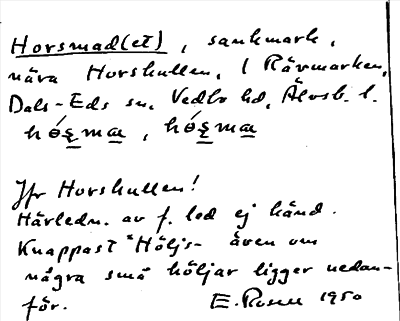 Horsmad(et), sankmark,
nära Horskullen, i Rävmarken,
Dals-Eds sn, Vedbo hd, Älvsb. l.
Jfr Horskullen!
Härledn. av f. led ej känd.
Knappast "Höljs- även om
några små höljar ligger nedan-
för. E. Rosell 1950